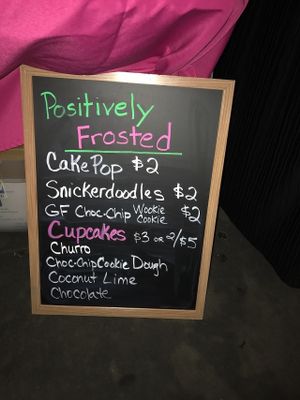 Positively
Frosted
Cake Pop $2
Snickerdoodles $2
GF Choc-Chip Wookie Cookie $2
Cupcakes $3 or 2/$5
Churro
Choc-Chip Cookie Dough
Coconut Lime
Chocolate